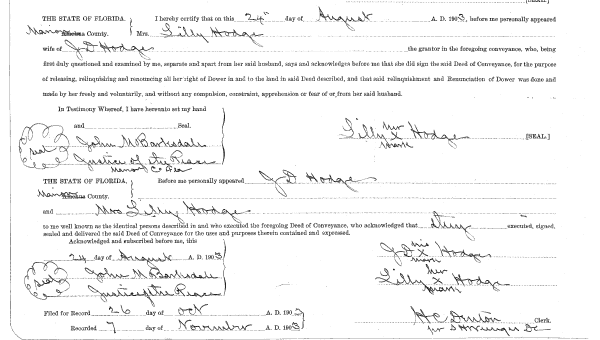 THE STATE OF FLORIDA. } I hereby certify that on this 24" day of August A. D. 1903, before me personally appeared
County. } Mrs. Lilly Hodge
wife of J D Hodge the grantor in the foregoing conveyance, who, being
first duly questioned and examined by me, separate and apart from her said husband, says and acknowledges before me that she did sign the said Deed of Conveyance, for the purpose
of releasing, relinquishing and renouncing all her right of Dower in and to the land in said Deed described, and that said relinquishment and Renunciation of Dower was done and
made by her freely and voluntarily, and without any compulsion, constraint, apprehension or fear of or from her said husband.
In Testimony Whereof, I have hereunto set my hand
and Seal.
Seal John M Barksdale
Justice of the Peace
her
Lilly X Hodge [SEAL]
mark
THE STATE OF FLORIDA. } Before me personally appeared J D Hodge
County.
and Mrs Lilly Hodge
to me well known as the identical persons described in and who executed the foregoing Deed of Conveyance, who acknowledged that they executed, signed,
sealed and delivered the said Deed of Conveyance for the uses and purposes therein contained and expressed.
Acknowledged and subscribed before me, this
24 day of August A. D. 1903
Seal John M Barksdale
Justice of the Peace
his
J D X Hodge
mark
her
Lilly X Hodge
mark
Filed for Record 26 day of Oct A. D. 1903
Recorded 7 day of November A. D. 1903
H C Denton Clerk.